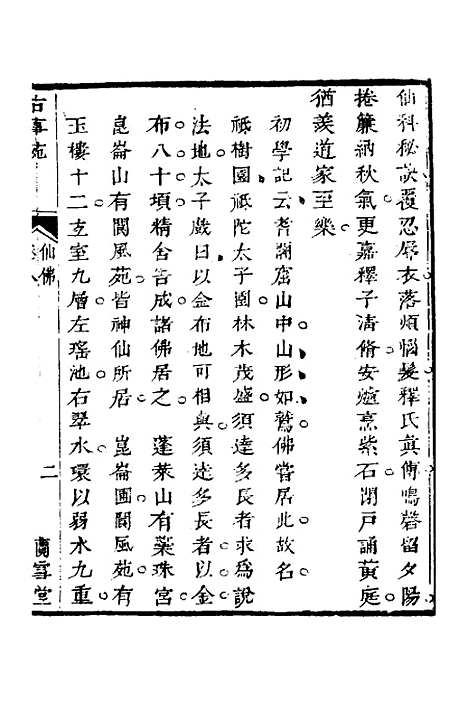 仙科秘訣覆忍辱衣落煩惱髮釋氏真傳鳴磬留夕陽
捲簾納秋氣更嘉釋子清脩安爐烹紫石閉戶誦黃庭
猶羨道家至樂
初學記云耆闍窟山中山形如鷲佛嘗居此故名
祇樹園祇陀太子園林木茂盛須達多長者求為說
法地太子戲曰以金布地可相與須達多長者以金
布八十頃精舍告成諸佛居之 蓬萊山有蘂珠宮
崑崙山有閬風苑皆神仙所居 崑崙圃閬風苑有
玉樓十二玄室九層左瑤池右翠水環以弱水九重
古事苑
仙佛
二
蘭雪堂